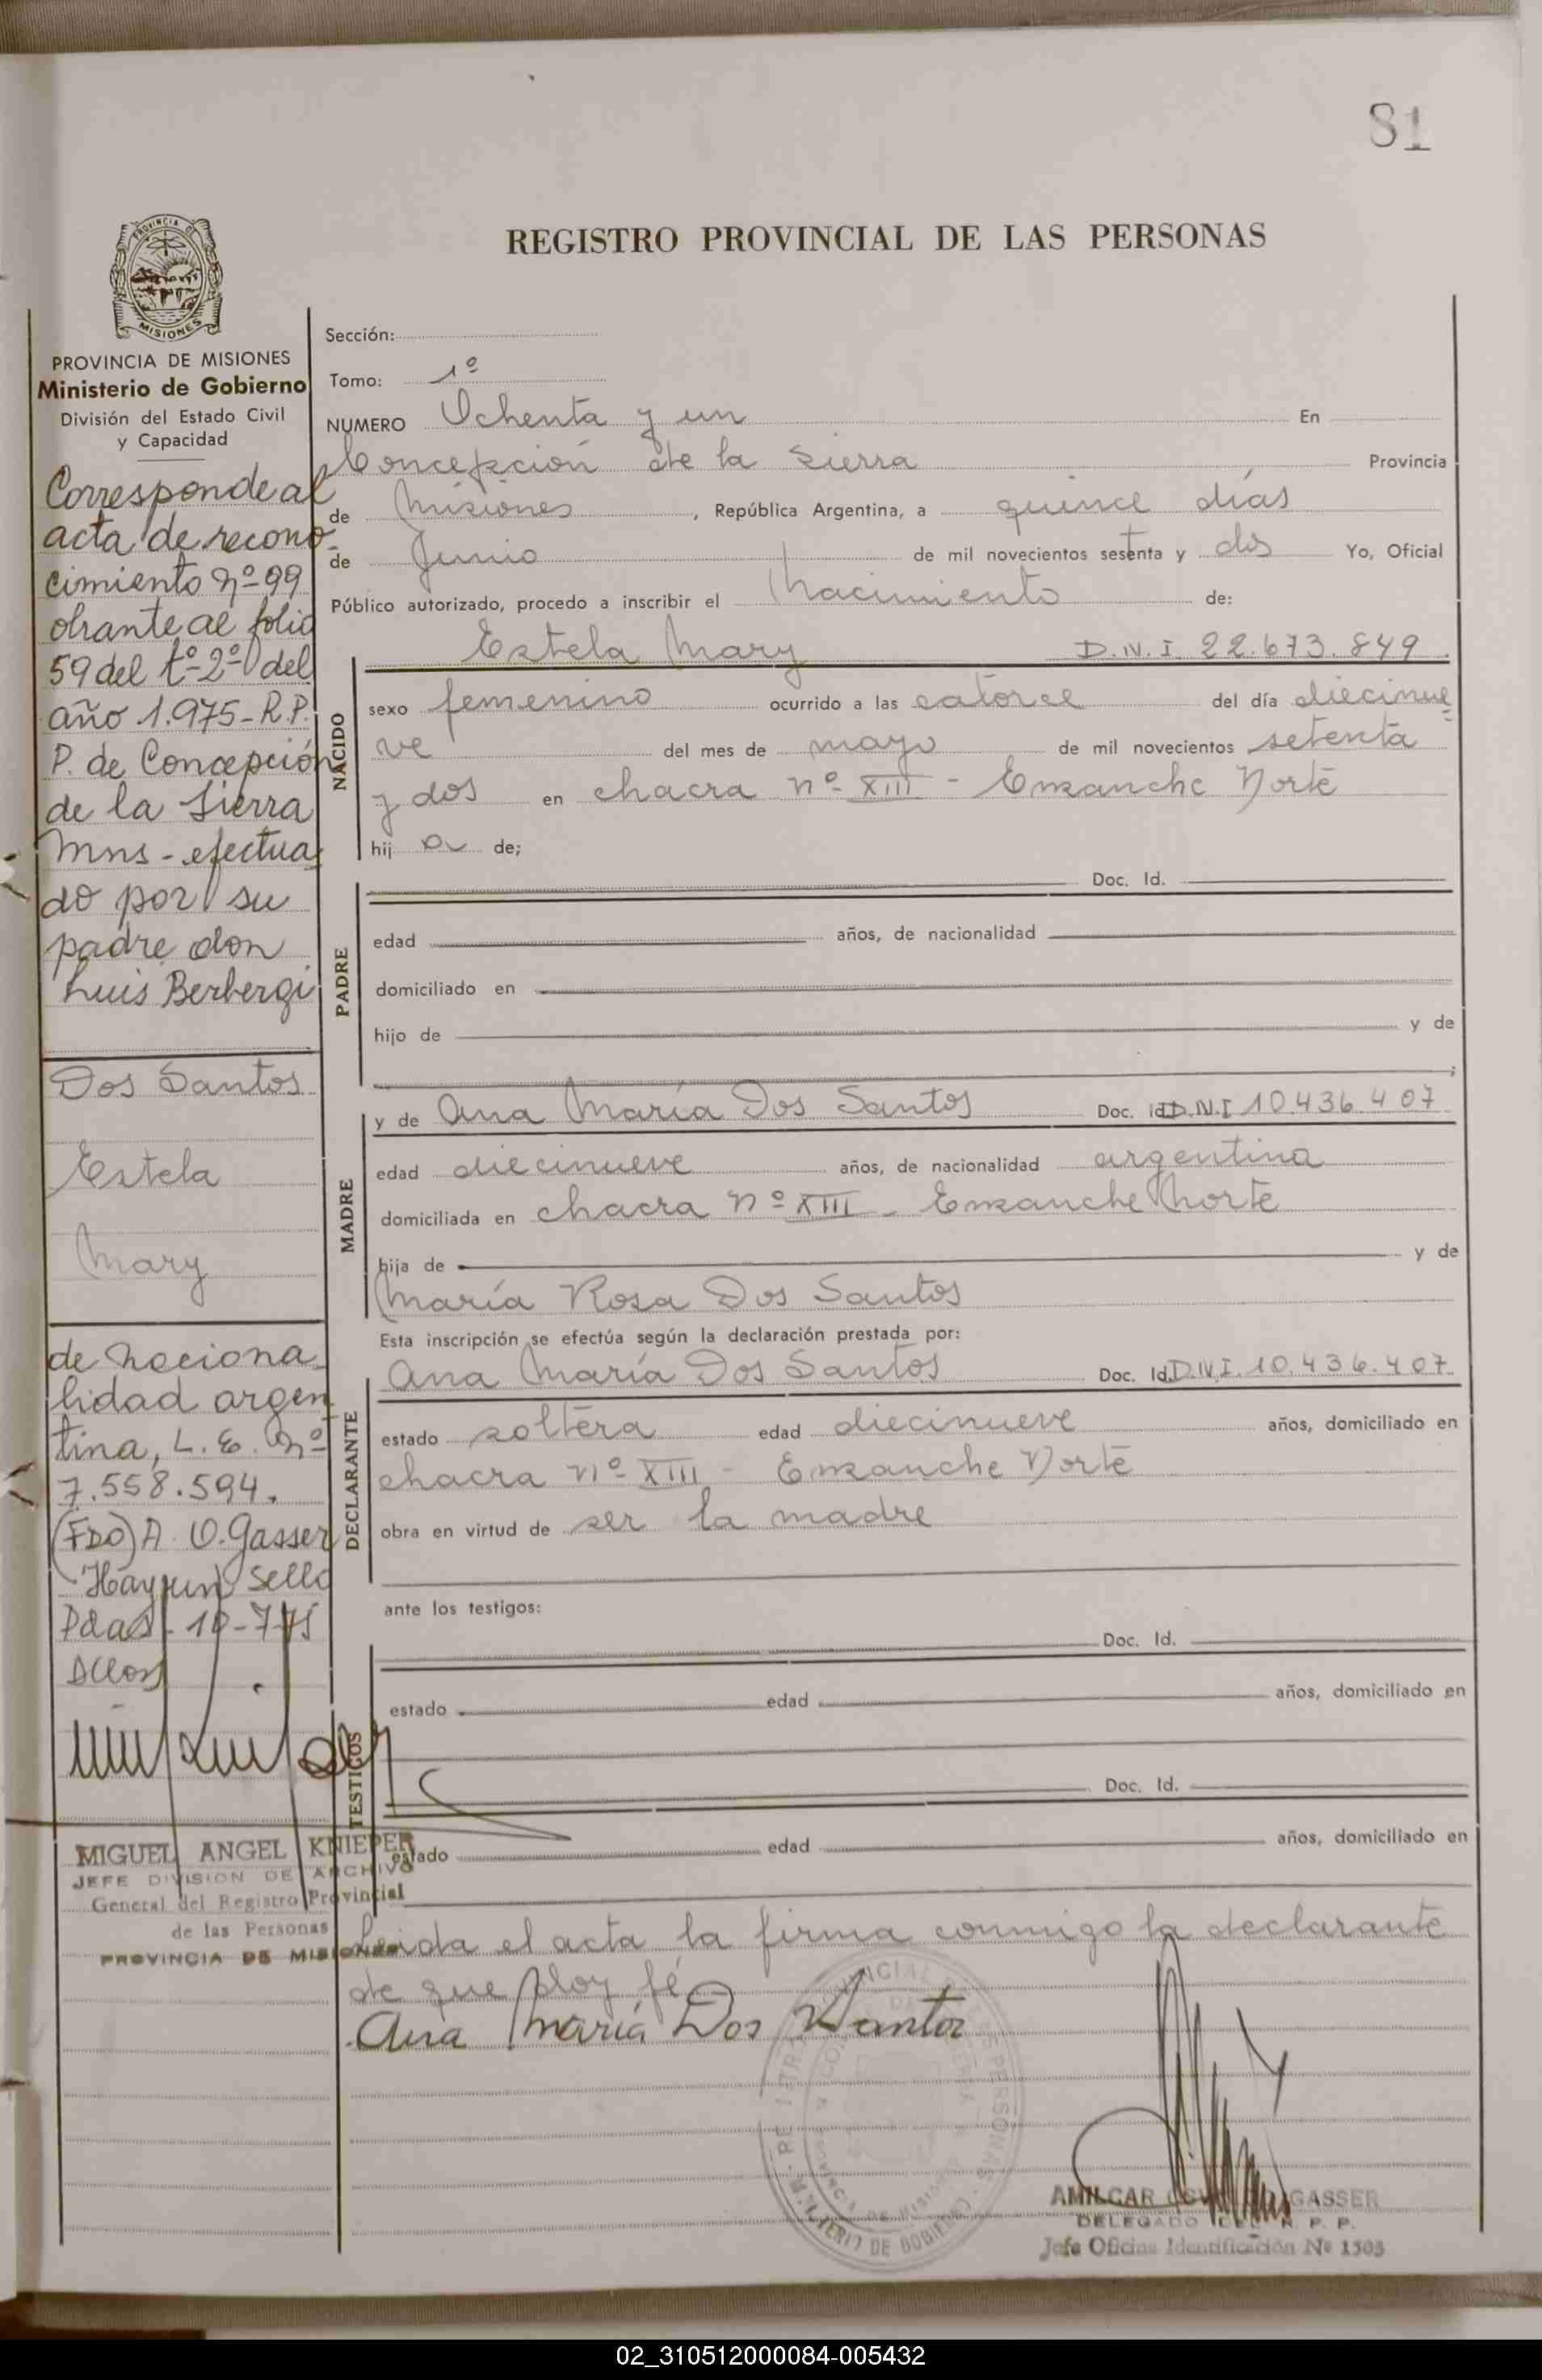 81
REGISTRO PROVINCIAL DE LAS PERSONAS
PROVINCIA DE
MISIONES
PROVINCIA DE MISIONES
Ministerio de Gobierno
División del Estado Civil
y Capacidad
Corresponde al
acta de recono-
cimiento nº 99
obrante al folio
59 del tº 2º del
año 1.975 - R.P.
P. de Concepción
de la Sierra
Mns - efectua
do por su
padre don
Luis Berbergi
Dos Santos
Estela
Mary
de naciona
lidad argen
tina, L.E. Nº
7.558.594.
(FDO) A. O. Gasser
Hay un sello
Pdas - 10-775
MIGUEL ANGEL KNIEPER
JEFE DIVISION DE ARCHIVO
General del Registro Provincial
de las Personas
PROVINCIA DE MISIONES
Sección:
Tomo: 1º
NUMERO Ochenta y un En
Concepción de la Sierra Provincia
de Misiones, República Argentina, a quince días
de Junio de mil novecientos sesenta y dos Yo, Oficial
Público autorizado, procedo a inscribir el Nacimiento de:
Estela Mary D.N.I. 22.673.849
NACIDO
sexo femenino ocurrido a las catorce del día diecinue
ve del mes de mayo de mil novecientos setenta
y dos en chacra nº XIII - Ensanche Norte
hij a de;
PADRE
Doc. Id.
edad años, de nacionalidad
domiciliado en
hijo de y de
;
MADRE
y de Ana María Dos Santos Doc. Id. D.N.I 10.436.407
edad diecinueve años, de nacionalidad argentina
domiciliada en chacra nº XIII - Ensanche Norte
hija de y de
María Rosa Dos Santos
Esta inscripción se efectúa según la declaración prestada por:
DECLARANTE
Ana María Dos Santos Doc. Id. D.N.I. 10.436.407
estado soltera edad diecinueve años, domiciliado en
chacra nº XIII - Ensanche Norte
obra en virtud de ser la madre
ante los testigos:
TESTIGOS
Doc. Id.
estado edad años, domiciliado en
Doc. Id.
estado edad años, domiciliado en
Leida el acta la firma conmigo la declarante
de que doy fé
Ana María Dos Santos
MINISTERIO DE GOBIERNO
AMILCAR GASSER
DELEGADO DEL R. P. P.
Jefe Oficina Identificación Nº 1505
02_310512000084-005432